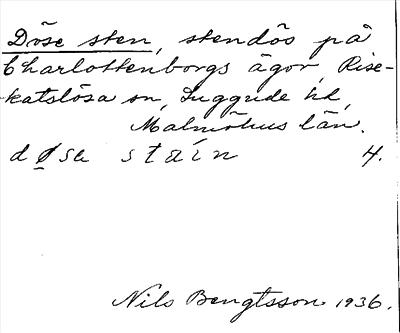 Döse sten, stendös på
Charlottenborgs ägor, Rise-
katslösa sn, Luggude hd,
Malmöhus län.
døsa staín 4.
Nils Bengtsson 1936.